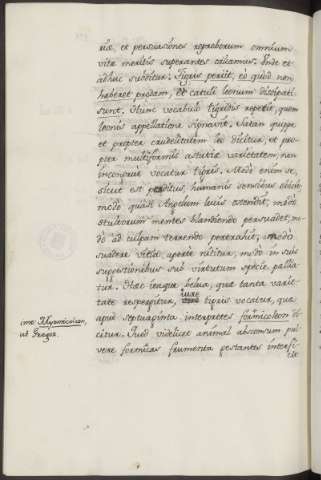 riæ, et persuasiones reproborum omnium
vitæ meritis superantes calcamus. Unde et
adhuc subditur: Tigris periit, eò quod non
haberet prædam, et catuli leonum dissipati
sunt. Hunc vocabulo tigridis repetit, quem
leonis appellatione signavit. Satan quippe
et propter crudelitatem leo dicitur, et pro-
pter multiformis astutiæ varietatem, non
incongruè vocatur tigris. Modò enim se,
sicut est perditus, humanis sensibus obiicit,
modò quasi Angelum lucis ostendit, modò
stultorum mentes blandiendo persuadet, mo-
dò ad culpam terrendo pertrahit, modò
suadere vitia apertè nititur, modò in suis
suggestionibus sub virtutum specie pallia-
tur. Hæc itaque bellua, quæ tanta varie-
tate respergitur, iure tigris vocatur, quæ
apud Septuaginta interpretes formicoleon di-
citur. Quod videlicet animal absconsum pul-
vere formicas frumenta gestantes interfi-
cit
ut Græca